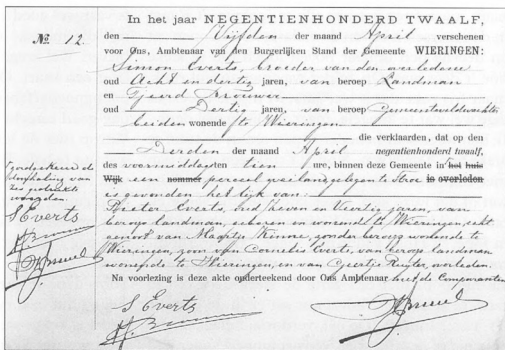 In het jaar NEGENTIENHONDERD TWAALF,
No. 12.
den Vijfden der maand April verschenen
voor Ons, Ambtenaar van den Burgerlijken Stand der Gemeente WIERINGEN:
Simon Everts, broeder van den overledene
oud Acht en dertig jaren, van beroep Landman
en Tjeerd Brouwer
oud Dertig jaren, van beroep Gemeenteveldwachter
beiden wonende te Wieringen
die verklaarden, dat op den
Derden der maand April negentienhonderd twaalf,
des voormiddags ten tien ure, binnen deze Gemeente in het huis
Wijk een nommer perceel weiland gelegen te Stroe is overleden
is gevonden het lijk van:
Pieter Everts, oud Zeven en Veertig jaren, van
beroep landman, geboren en wonend te Wieringen, echt
genoot van Maartje Kinne, zonder beroep wonende te
Wieringen, zoon van Cornelis Everts, van beroep landman
wonende te Wieringen, en van Geertje Ruiter, overleden.
Na voorlezing is deze akte onderteekend door Ons Ambtenaar met de Comparanten
Goedgekeurd de
doorhaling van
zes gedrukte
woorden.
S Everts
S. Everts